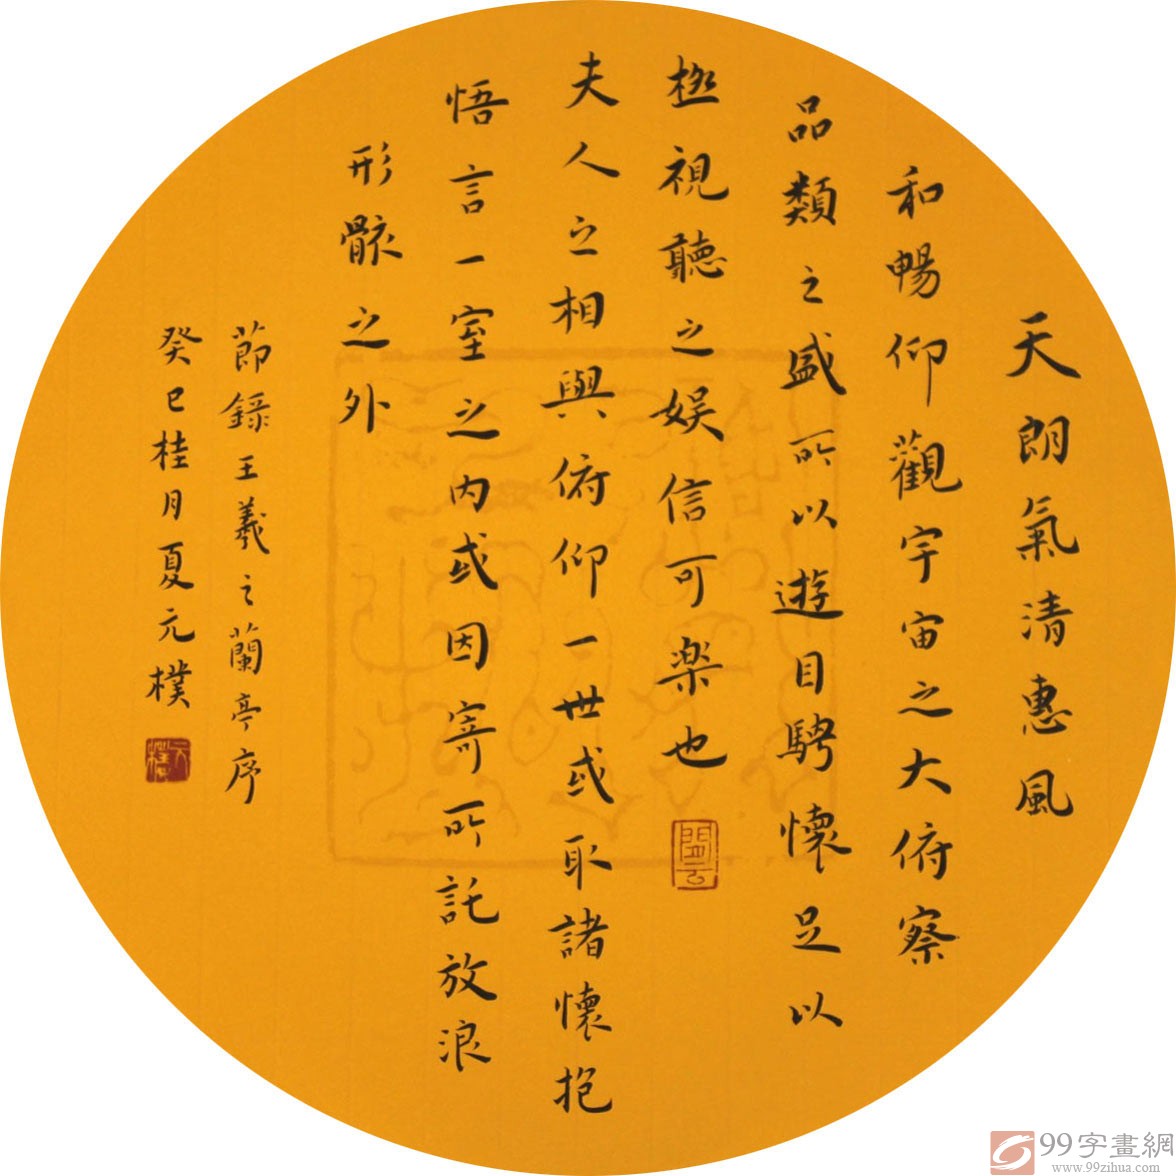 天朗氣清惠風
和暢仰觀宇宙之大俯察
品類之盛所以遊目騁懷足以
極視聽之娱信可楽也
夫人之相與俯仰一世或取諸懷抱
悟言一室之内或因寄所託放浪
形骸之外
節錄王羲之蘭亭序
癸巳桂月夏元樸
99字畫網
www.99zihua.com